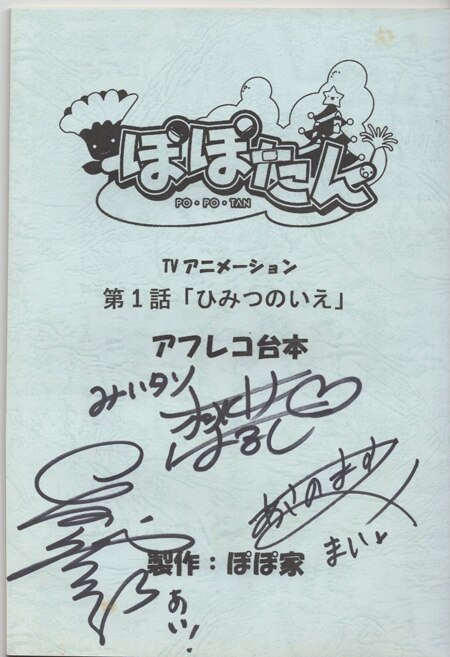 ぽぽたん
PO・PO・TAN
TV アニメーション
第１話「ひみつのいえ」
アフレコ台本
みいタソ
はるし
あさのますみ
まい
製作：ぽぽ家
あい！